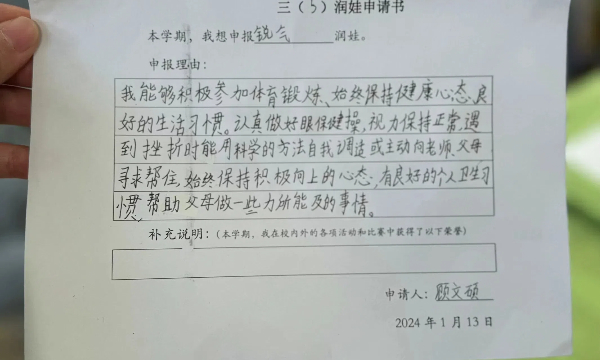 三（5）润娃申请书
本学期，我想申报锐气润娃。
申报理由：
我能够积极参加体育锻炼、始终保持健康心态，良
好的生活习惯。认真做好眼保健操，视力保持正常，遇
到挫折时能用科学的方法自我调适或主动向老师、父母
寻求帮住，始终保持积极向上的心态；有良好的个人卫生习
惯，帮助父母做一些力所能及的事情。
补充说明：（本学期，我在校内外的各项活动和比赛中获得了以下荣誉）
申请人：顾文硕
2024 年 1 月 13 日